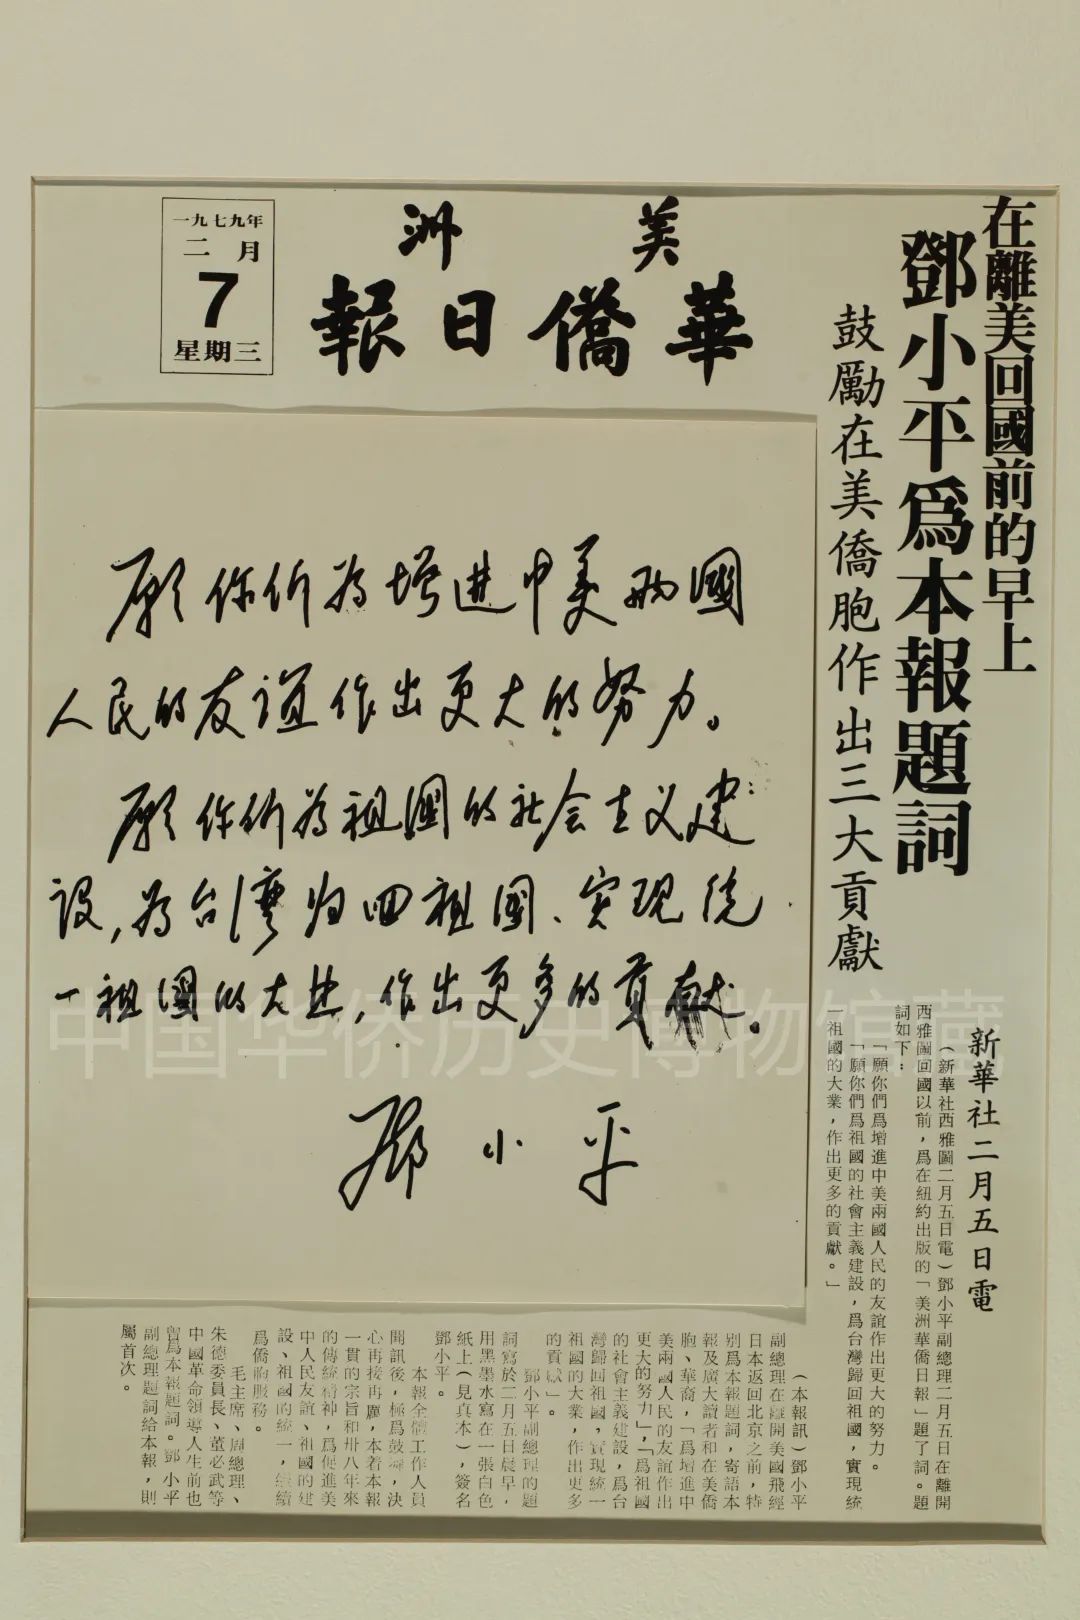 一九七九年
二月
7
星期三
美洲
華僑日報
在離美回國前的早上
鄧小平爲本報題詞
鼓勵在美僑胞作出三大貢獻
愿你们为增进中美两國
人民的友谊作出更大的努力。
愿你们为祖國的社会主义建
设,为台湾归回祖國、实现统
一祖國的大业,作出更多的贡献。
邓小平
新華社二月五日電
(新華社西雅圖二月五日電)鄧小平副總理二月五日在離開
西雅圖回國以前,爲在紐約出版的「美洲華僑日報」題了詞。題
詞如下:
「願你們爲增進中美兩國人民的友誼作出更大的努力。
「願你們爲祖國的社會主義建設,爲台灣歸回祖國,實現統
一祖國的大業,作出更多的貢獻。」
(本報訊)鄧小平
副總理在離開美國飛經
日本返回北京之前,特
别爲本報題詞,寄語本
報及廣大讀者和在美僑
胞、華裔,「爲增進中
美兩國人民的友誼作出
更大的努力」,「爲祖國
的社會主義建設,爲台
灣歸回祖國,實現統一
祖國的大業,作出更多
的貢獻」。
鄧小平副總理的題
詞寫於二月五日晨早,
用黑墨水寫在一張白色
紙上(見真本),簽名
鄧小平。
本報全體工作人員
聞訊後,極爲鼓舞,決
心再接再厲,本着本報
一貫的宗旨和卅八年來
的傳統精神,爲促進美
中人民友誼、祖國的建
設、祖國的統一,繼續
爲僑胞服務。
毛主席、周總理、
朱德委員長、董必武等
中國革命領導人生前也
曾爲本報題詞。鄧小平
副總理題詞給本報,則
屬首次。
中国华侨历史博物馆藏